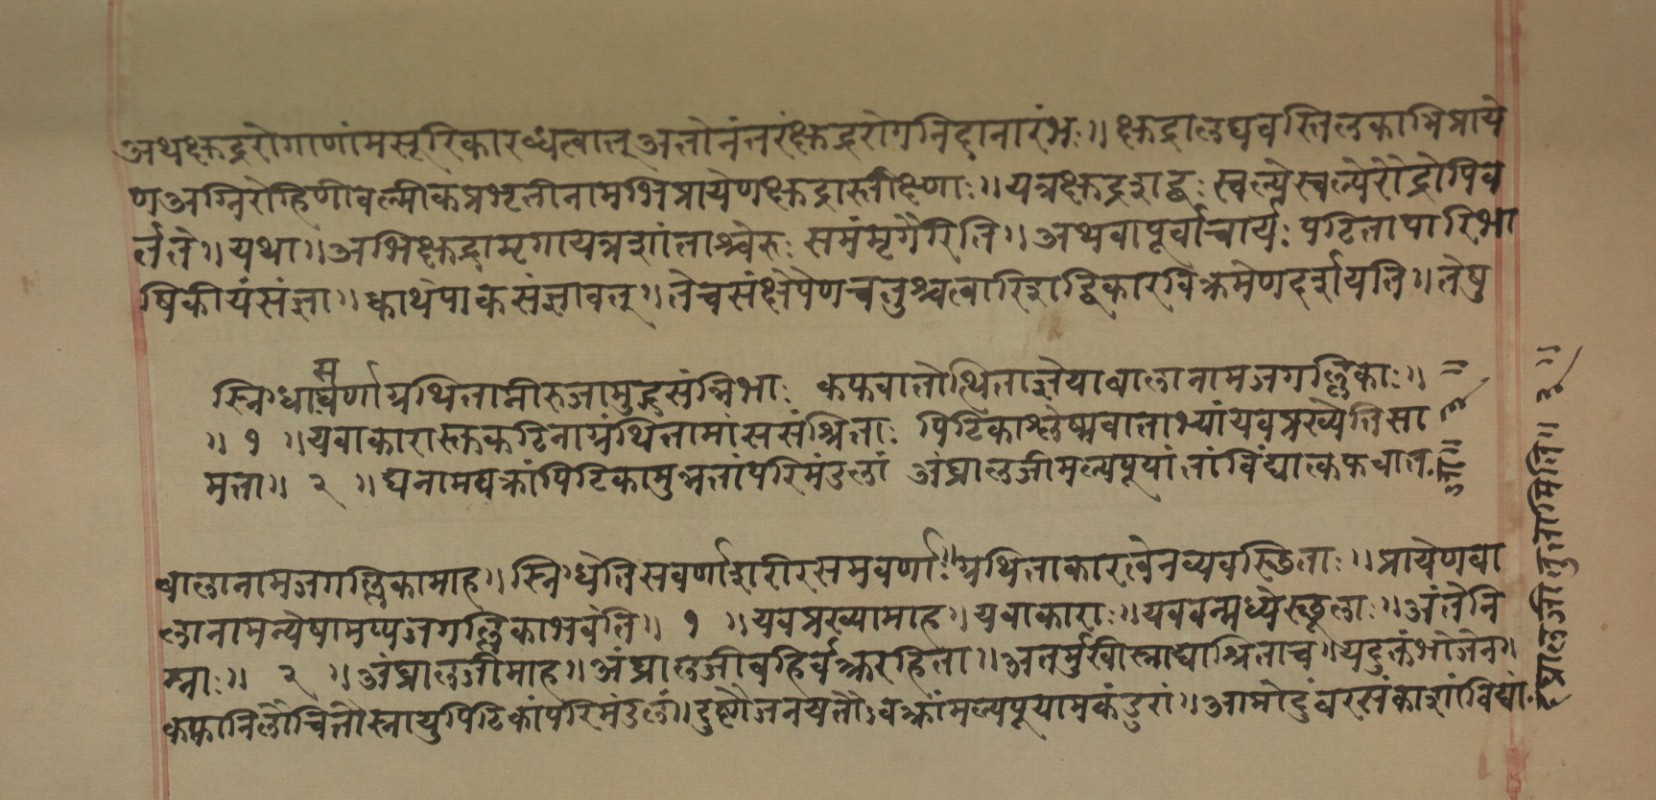 अथक्षुद्ररोगाणांमसूरिकारब्धत्वात् अतोनंतरंक्षुद्ररोगनिदानारंभः॥ क्षुद्रालघवस्तिलकाभिप्राये
णअग्निरोहिणीवल्मीकप्रभृतीनामभिप्रायेणक्षुद्रास्तीक्ष्णाः॥ यत्रक्षुद्रशद्बः स्वल्पेस्वल्पेरौद्रेपिव
र्तते॥ यथा॥ अभिक्षुद्रामृगायत्रशांताश्चेरुः समंमृगैरिति॥ अथवापूर्वाचार्यैः पठितापारिभा
षिकीयंसंज्ञा॥ क्वाथेपाकसंज्ञावत्॥ तेचसंक्षेपेणचतुश्चत्वारिंशद्विकारविक्रमेणदर्शयति॥ तेषु
स्निग्धासवर्णाग्रथितानीरुजामुद्गसंन्निभाः कफवातोत्थिताज्ञेयाबालानामजगल्लिकाः॥
॥ १ ॥ यवाकारासक्तकठिनाग्रंथितामांससंश्रिताः पिटिकाश्लेष्मवाताभ्यांयवप्रख्येतिसा
मता॥ २ ॥ घनामवक्रांपिटिकामुन्नतांपरिमंडलां अंध्रालजीमल्पपूयांतांविंद्यात्कफवात
बालानामजगल्लिकामाह॥ स्निग्धेतिसवर्णाशरीरसमवर्णाः॥ ग्रथिताकारत्वेनव्यवस्छिताः॥ प्रायेणबा
लानामन्येषामप्यजगल्लिकाभवंति॥ १ ॥ यवप्रख्यामाह॥ यवाकाराः॥ यववन्मध्येस्छूलाः॥ अंतेनि
म्नाः॥ २ ॥ अंध्रालजीमाह॥ अंध्रालजीबहिर्वक्त्ररहिता॥ अतर्मुखीस्नाय्वाश्रिताच॥ यदुक्तंभोजेन॥
कफानिलौचितौस्नायुपिटिकांपरिमंडलां॥ दुष्टौजनयतोऽवक्रांमल्पपूयामकंडुरां॥ आमोदुंबरसंकाशांविद्यां